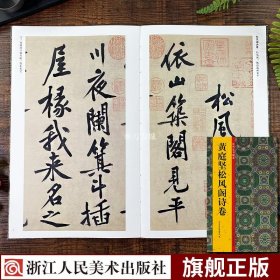 松风
依山築閣見平
川夜闌箕斗插
屋椽我来名之
黄庭坚松风阁诗卷
浙江人民美术出版社
旗舰正版